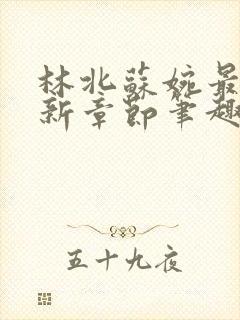 林北蘇婉最
新章節筆趣
五十九夜